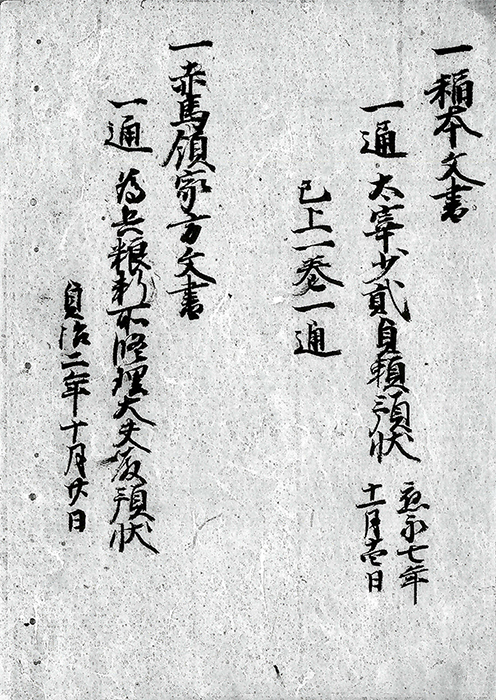 一稲本文書
一通 太宰少貳貞頼預状 應永七年
十一月十壱日
已上一巻一通
一赤馬領家方文書
一通 為兵粮料所修理大夫殿預状
貞治二年十月廿日